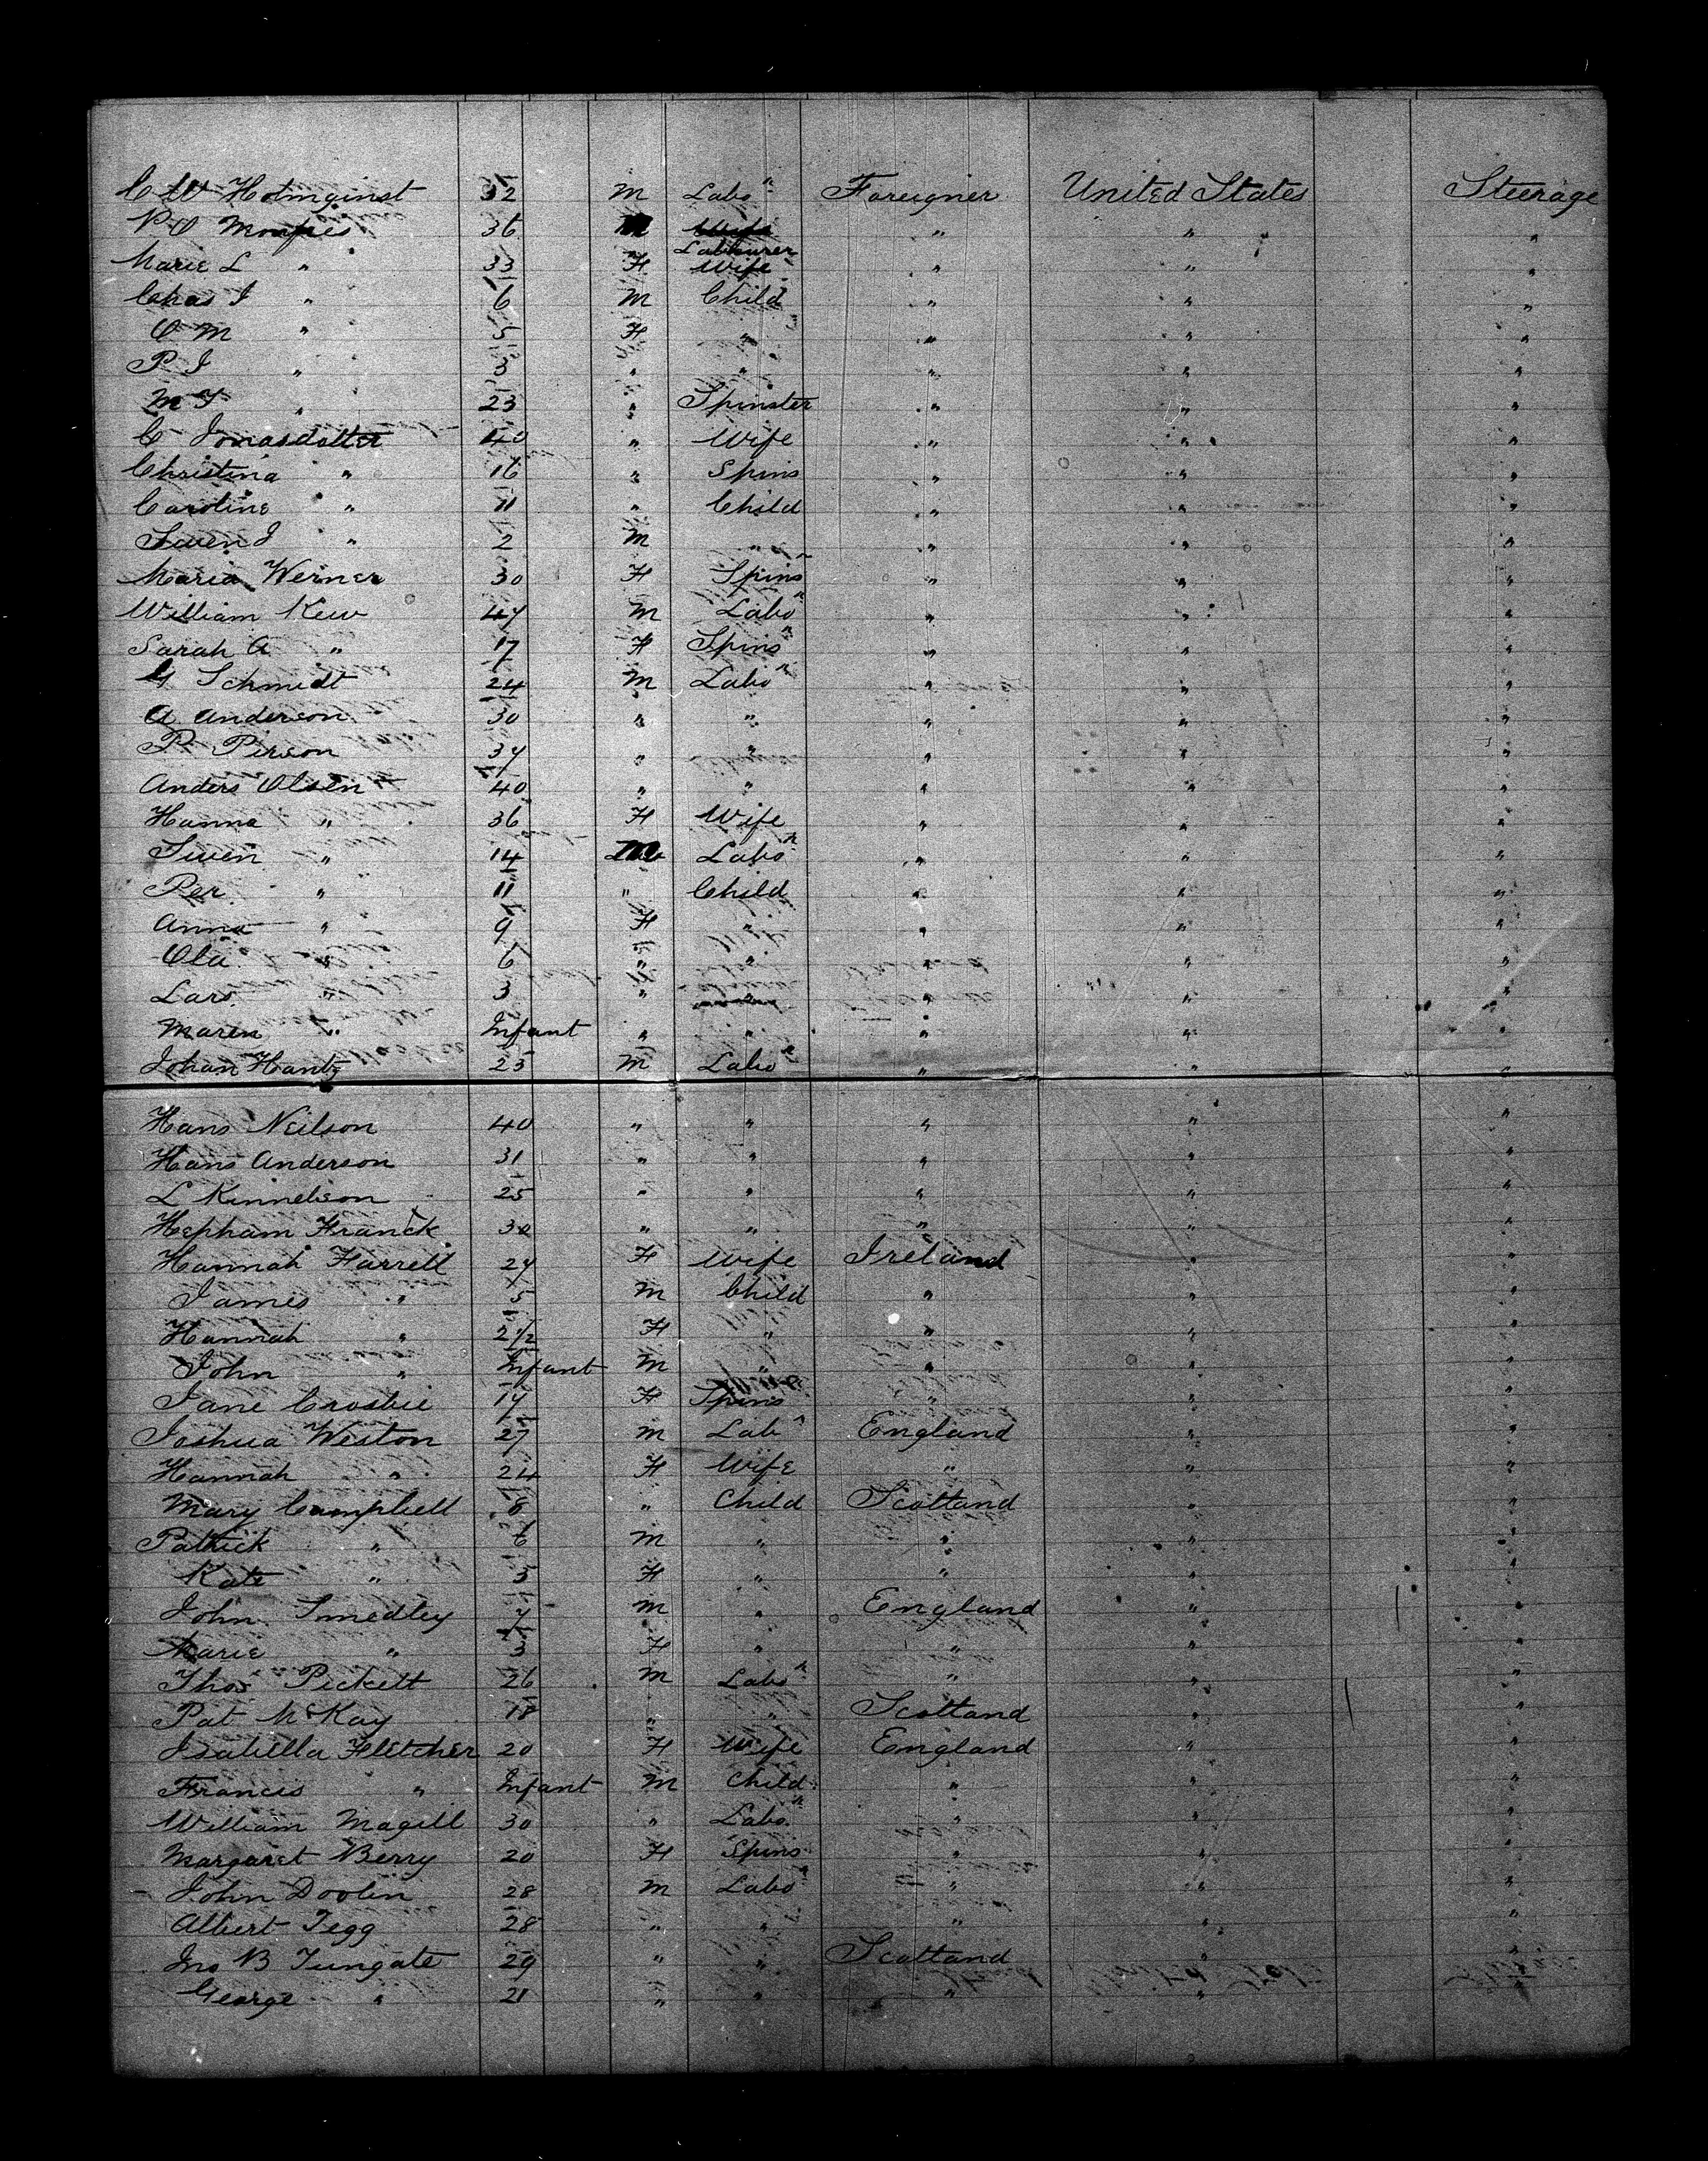 C W Holmginst 32 M Labo r Foreigner United States Steerage
P O Monpies 36 M Labourer " " "
Marie L " 33 F Wife " " "
Chas I " 6 M Child " " "
O M " 5 F " " " "
P I " 3 " " " " "
M F " 23 " Spinster " " "
C Jonasdotter 40 " Wife " " "
Christina " 16 " Spins " " "
Caroline " 11 " Child " " "
Swen J " 2 M " " " "
Maria Werner 30 F Spins r " " "
William Kew 47 M Labo r " " "
Sarah A " 17 F Spins r " " "
G Schmidt 24 M Labo r " " "
A Anderson 30 " " " " "
P Pirson 34 " " " " "
Anders Olsen 40 " " " " "
Hanna " 36 F Wife " " "
Swen " 14 M Labo r " " "
Per " 11 " Child " " "
Anna " 9 F " " " "
Ola " 6 " " " " "
Lars " 3 " " " "
Maren " Infant " " " " "
Johan Hantz 23 M Labo r " " "
Hans Neilson 40 " " " " "
Hans Anderson 31 " " " " "
L Kinnelson 25 " " " " "
Hepham Franck 30 " " " " "
Hannah Farrell 27 F Wife Ireland " "
James " 5 M Child " " "
Hannah " 2 1/2 F " " " "
John " Infant M " " " "
Jane Crosbie 19 F Spins " " "
Joshua Weston 27 M Lab r England " "
Hannah " 24 F Wife " " "
Mary Campbell 8 " Child Scotland " "
Patrick " 6 M " " " "
Kate " 3 F " " " "
John Smedley 7 M " England " "
Marie " 3 F " " " "
Thos Pickett 26 M Labo r " " "
Pat McKay 18 " " Scotland " "
Isabella Fletcher 20 F Wife England " "
Francis " Infant M Child " " "
William Magill 30 " Labo r " " "
Margaret Berry 20 F Spins " " "
John Doolin 28 M Labo r " " "
Albert Tegg 28 " " " " "
Jno B Tungate 29 " " Scotland " "
George " 21 " " " "